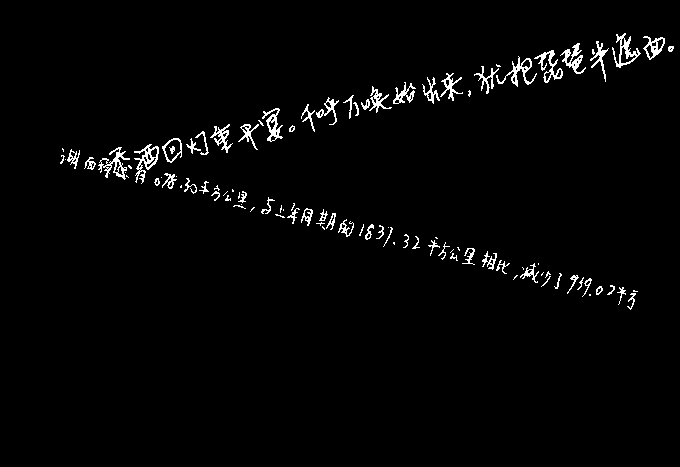 添酒回灯重开宴。千呼万唤始出来，犹抱琵琶半遮面。
湖面积有078.30平方公里，与上年同期的1837.32平方公里相比，减少了959.02平方